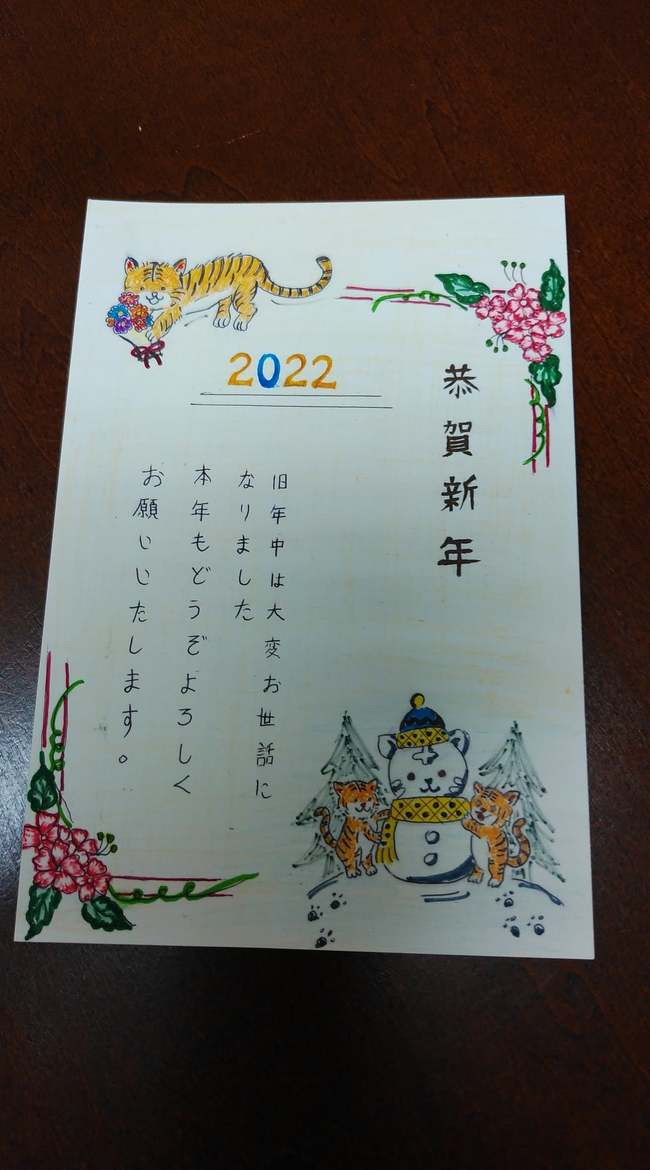 恭賀新年
2022
旧年中は大変お世話に
なりました
本年もどうぞよろしく
お願いいたします。